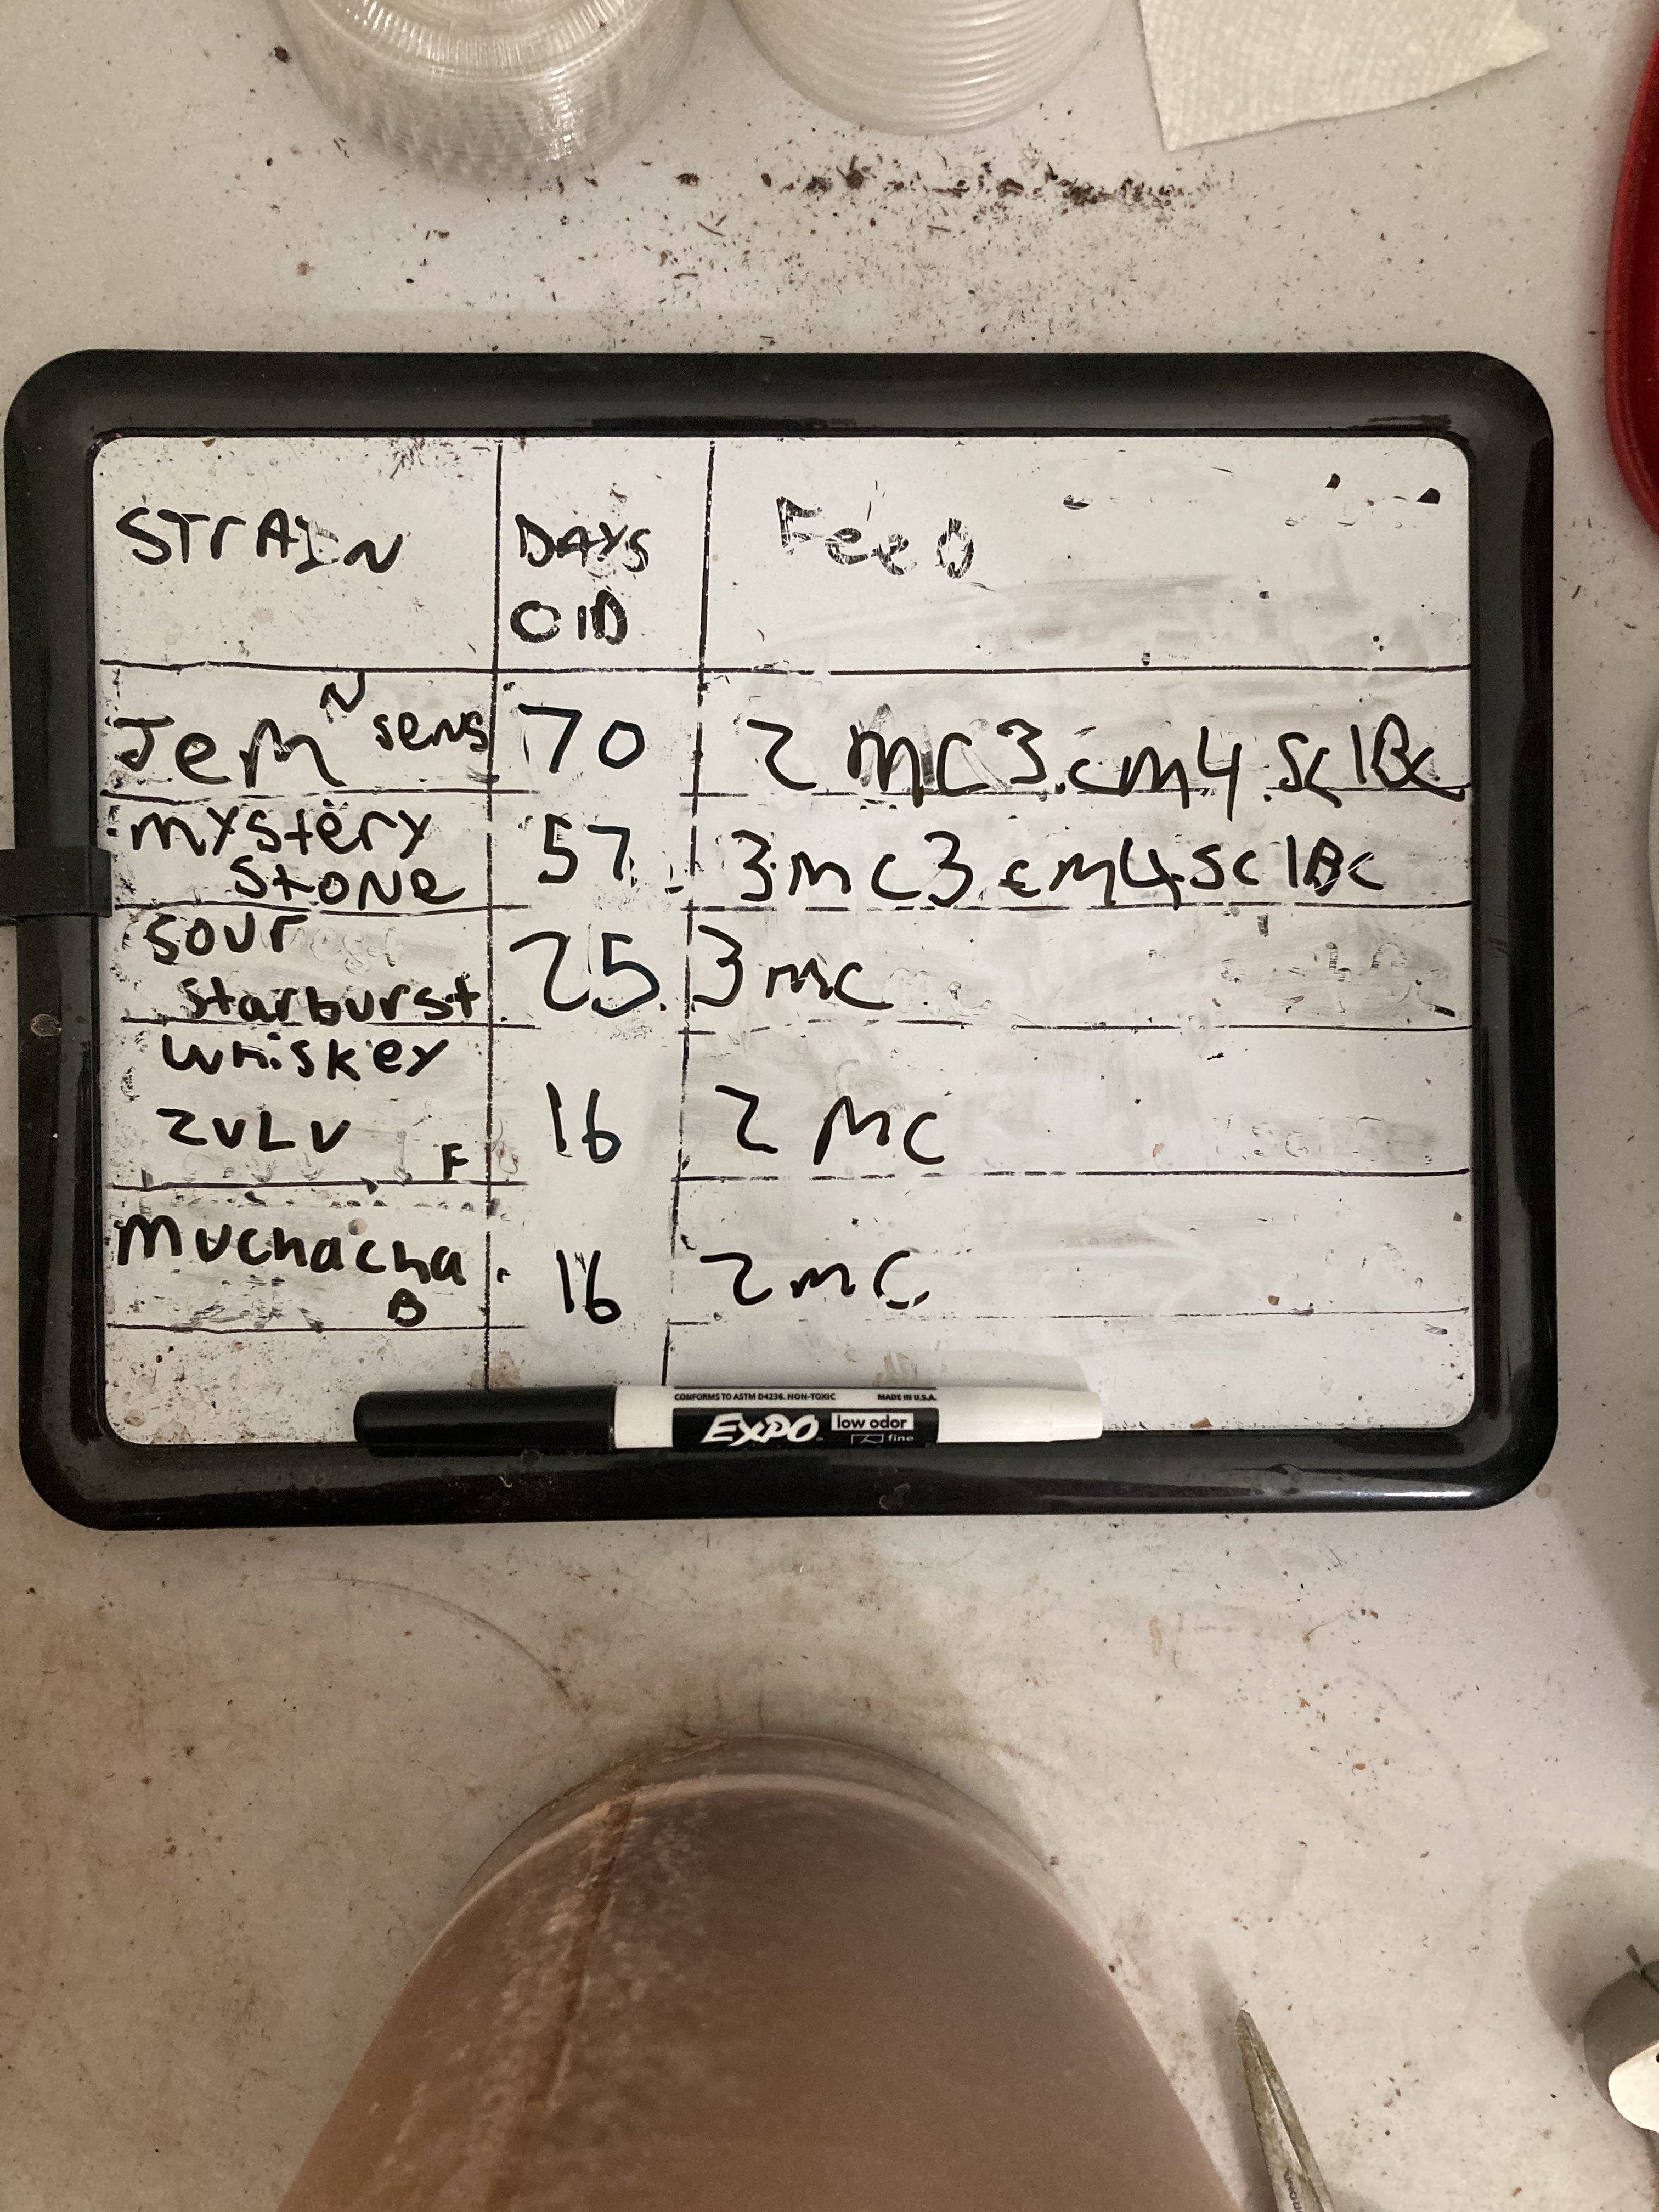 STrAIN DAYS Feed
OlD
Jem N sens 70 2 mc 3 cm 4 sc 1 Bc
mystery
stone 57 3 mc 3 cm 4 sc 1 Bc
sour
starburst 25 3 mc
whiskey
ZULU F 16 2 mc
muchacha
B 16 2 mc
CONFORMS TO ASTM D4236. NON-TOXIC MADE IN U.S.A.
EXPO low odor
fine